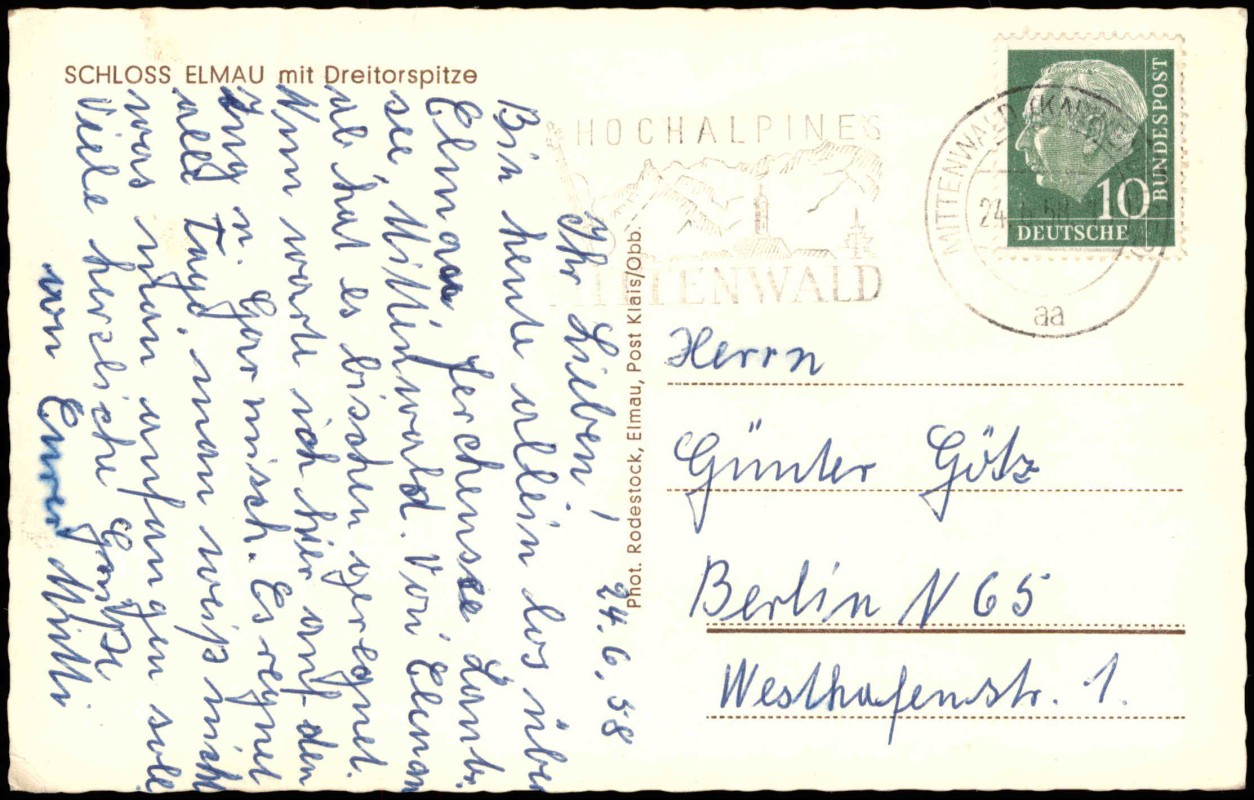 SCHLOSS ELMAU mit Dreitorspitze
24.6.58
Ihr Lieben!
Bin heute allein los über
Elmau Ferchensee Lautr.
see, Mittenwald. Von Elmau
ab hat es bisschen geregnet.
Nun warte ich hier auf den
Zug n. Garmisch. Es regnet
alle Tage, man weiß nicht
was man anfangen soll
Viele herzliche Grüße
von Eurer Mutti
Phot. Rodestock, Elmau, Post Klais/Obb.
HOCHALPINES
MITTENWALD
MITTENWALD
24. 6. 58
aa
10
DEUTSCHE
BUNDESPOST
Herrn
Günter Götz
Berlin N 65
Westhafenstr. 1.